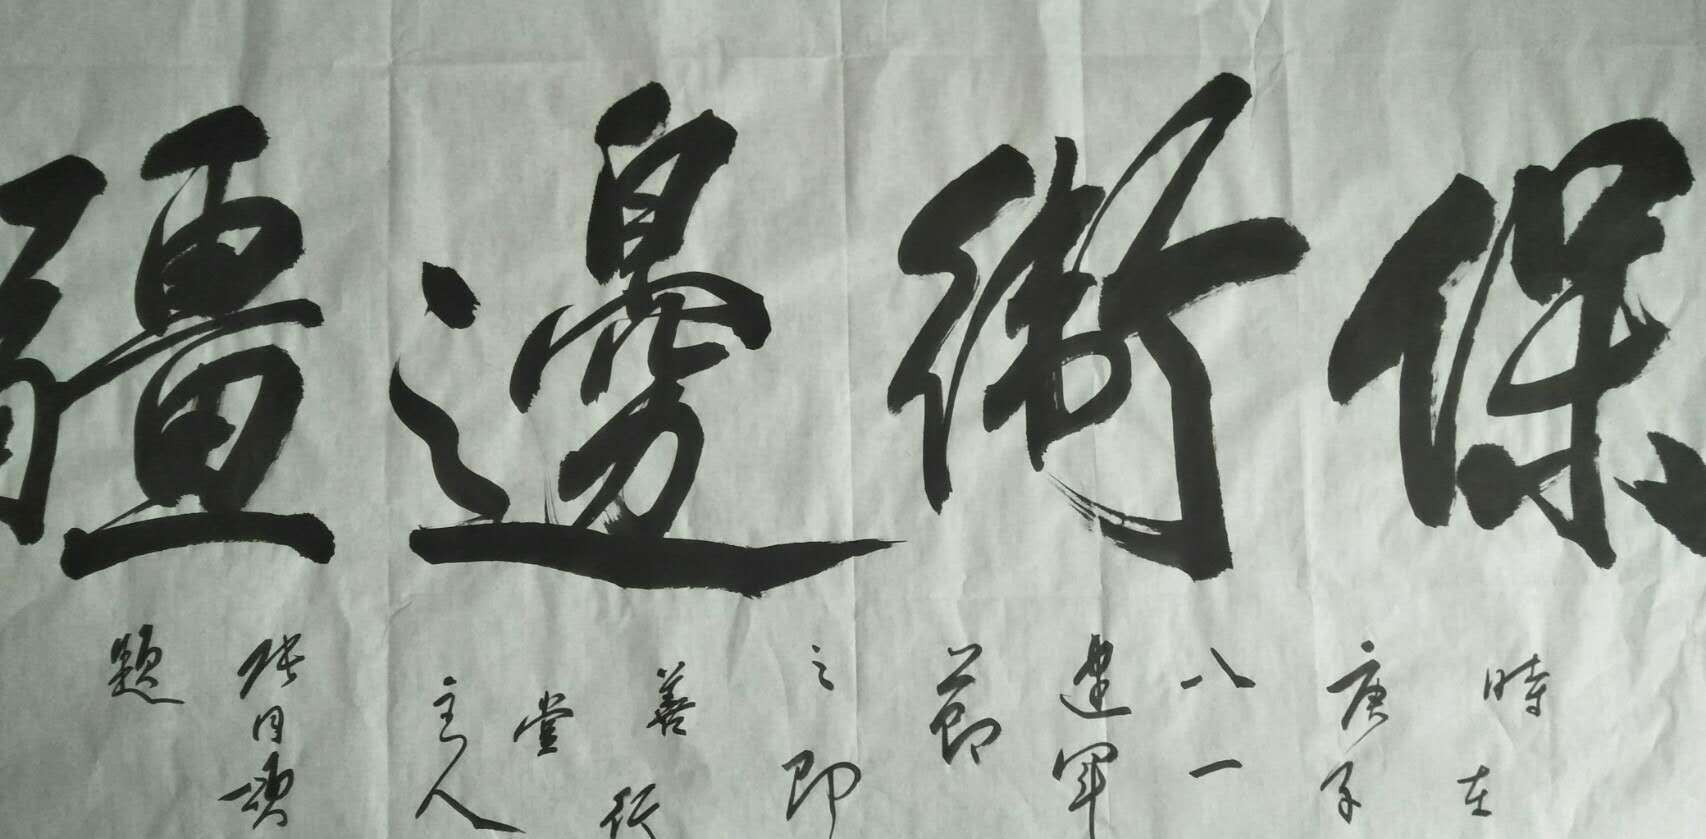 保衛邊疆
時在
庚子
八一
建軍
節
之即
善行
堂
主人
張
題